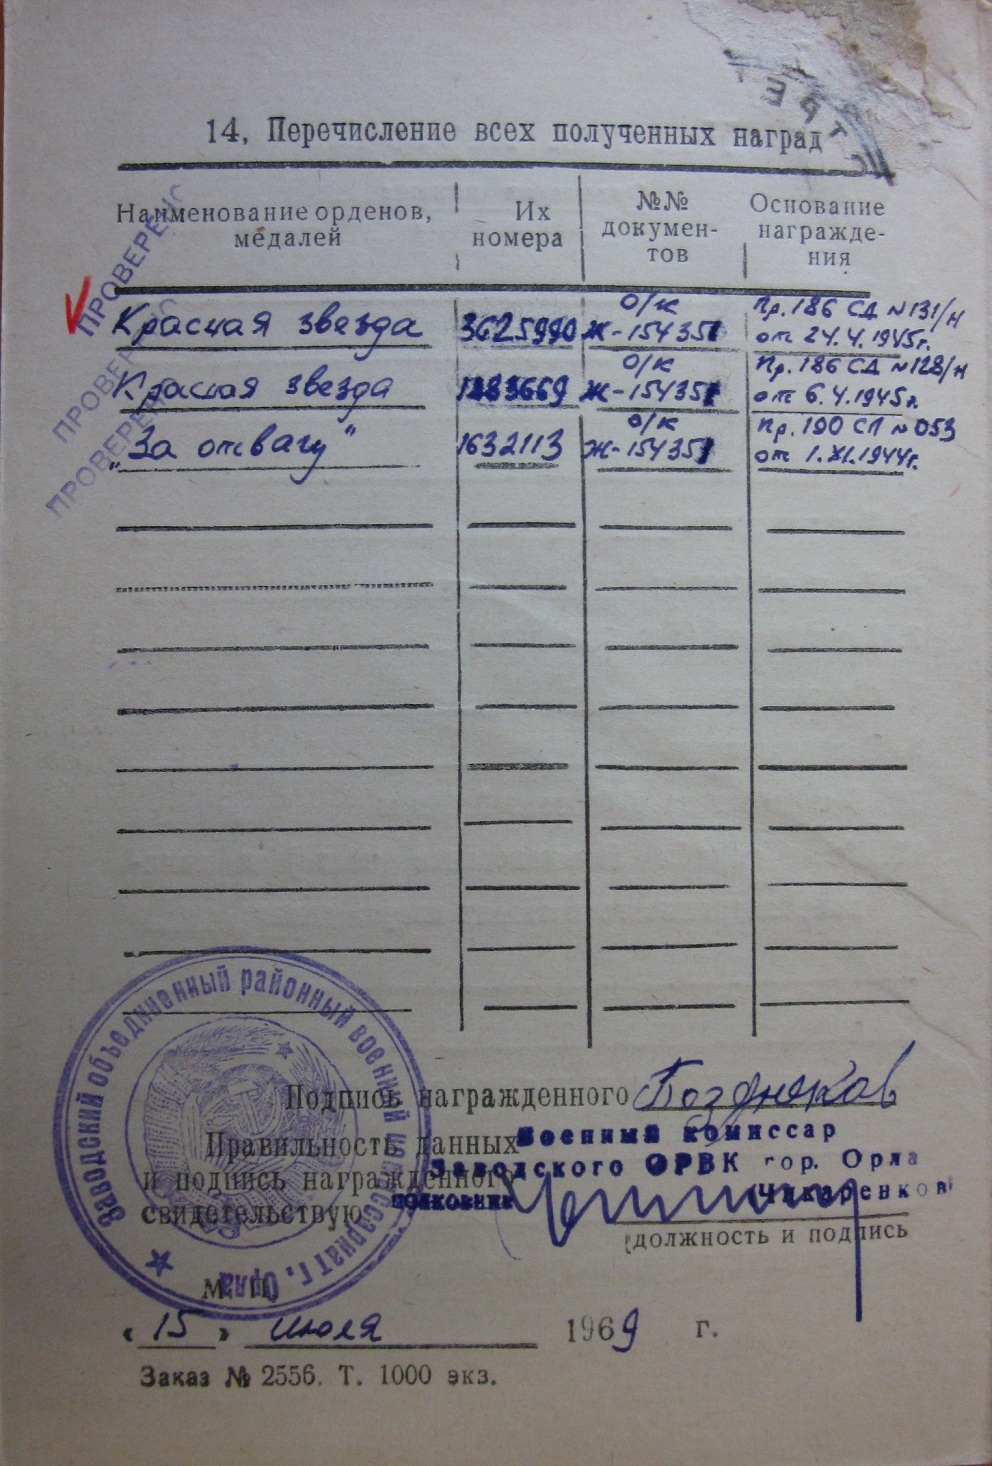 ТРЕТ
14, Перечисление всех полученных наград
Наименование орденов, медалей
Их номера
№№ документов
Основание награждения
ПРОВЕРЕНО
ПРОВЕРЕНО
ПРОВЕРЕНО
Красная звезда 3625990 о/к Ж-154351 Пр. 186 СД №131/н от 24.4.1945г.
Красная звезда о/к Ж-154351 Пр. 186 СД №128/н от 6.4.1945г.
„За отвагу" 1632113 о/к Ж-154351 Пр. 190 СП №053 от 1.XI.1944г.
Подпись награжденного
Правильность данных
и подпись награжденного
свидетельствую
Военный комиссар
Заводского ОРВК гор. Орла
полковник
(Чикаренков)
(должность и подпись
М. П.
Заводский объединенный районный военный комиссариат г. Орла
« 15 » июля 1969 г.
Заказ № 2556. Т. 1000 экз.